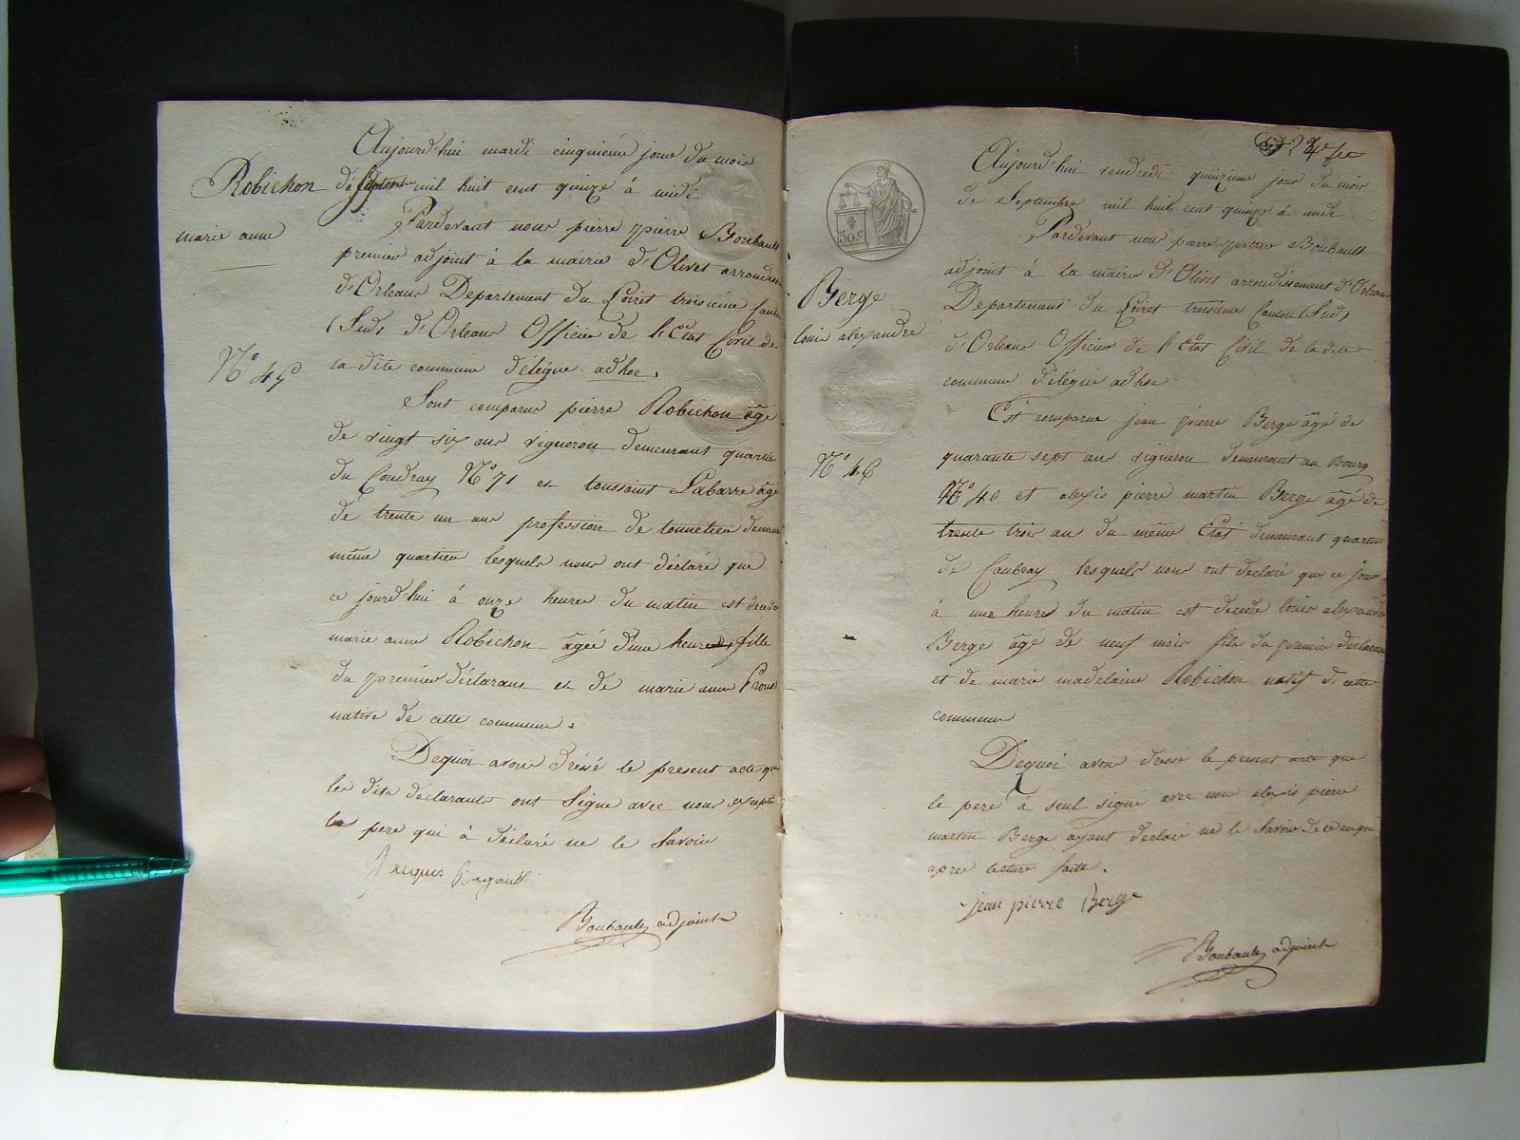 Robichon
marie anne
N° 45
Aujourd'hui mardi cinquieme jour du mois
de Septembre mil huit cent quinze à midi
Pardevant nous pierre Boubault
premier adjoint à la mairie d'Olivet
d'Orleans Departement du Loiret troisieme Canton
(Sud) d'Orleans Officier de l'Etat Civil de
la dite commune délégue adhoc,
Sont comparus pierre Robichon âgé
de vingt six ans vigneron demeurant quartier
du Coudray N° 71 et toussaint Labarre âgé
de trente un ans profession de tonnelier
même quartier lesquels nous ont déclaré que
ce jourd'hui à onze heures du matin est décédé
marie anne Robichon agée d'une heure fille
du premier déclarant et de marie anne
native de cette commune.
Dequoi avons dressé le present acte que
les dits déclarants ont Signé avec nous excepté
le pere qui à déclaré ne le Savoir
Boubault adjoint
Berge
louis alexandre
N° 46
24e
30c
Aujourd'hui vendredi quinzieme jour du mois
de Septembre mil huit cent quinze à midi
Pardevant nous pierre Boubault
adjoint à la mairie d'Olivet arrondissement d'Orleans
Departement du Loiret troisieme Canton (Sud)
d'Orleans Officier de l'Etat Civil de la dite
commune délégue adhoc
Est comparue jean pierre Berge âgé de
quarante sept ans vigneron demeurant au Bourg
N° 40 et alexis pierre martin Berge âgé de
trente trois ans du même Etat demeurant quartier
de Caubray lesquels nous ont declaré que ce jour
à une heure du matin est decedé louis alexandre
Berge âgé de neuf mois fils du premier declarant
et de marie madelaine Robichon natif de cette
commune
Dequoi avons dressé le present acte que
le pere à seul signé avec nous alexis pierre
martin Berge ayant declaré ne le Savoir de ce enquis
apres lecture faite.
jean pierre Berge
Boubault adjoint